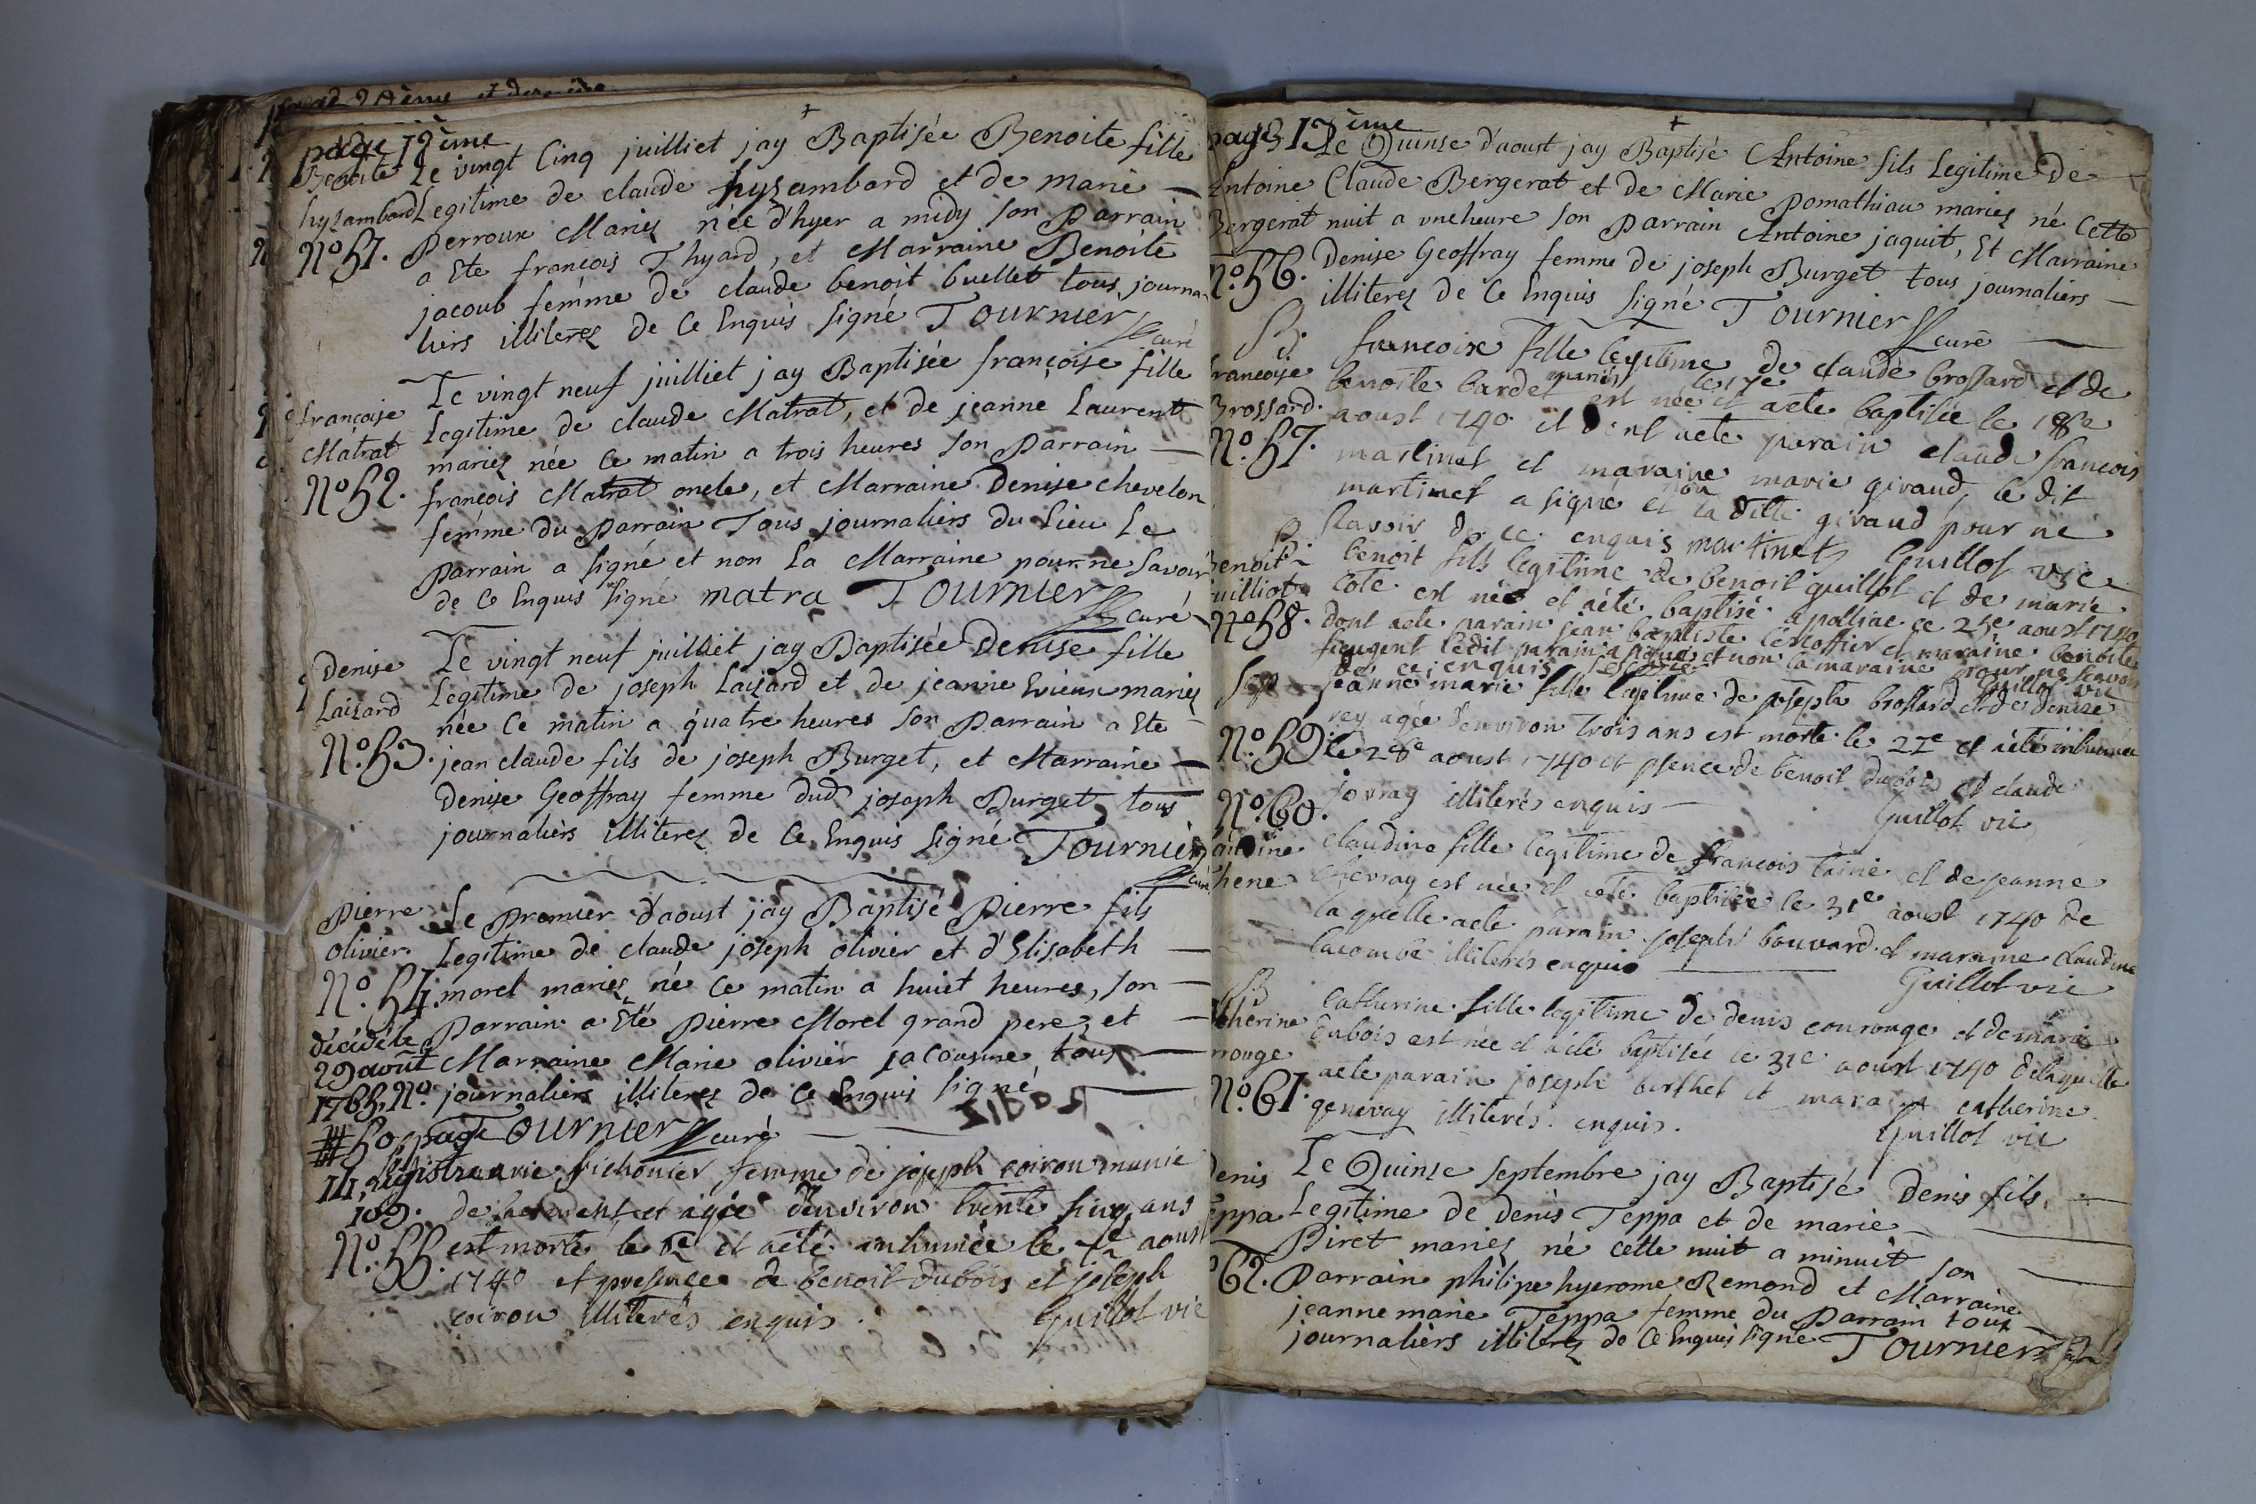 page 12ème
Benoite Le vingt Cinq juilliet jay Baptisée Benoite fille
hyzambard Legitime de claude hyzambard et de marie
No. 51. Perroux Mariez née d'hyer a midy son Parrain
a Ete françois Thyard, et Marraine Benoite
jacoub femme de claude benoit buellet tous journa-
liers illiterez de Ce Enquis signé Tournier curé
Le vingt neuf juilliet jay Baptisée françoise fille
françoise Legitime de claude Matrat, et de jeanne Laurent
Matrat mariez née Ce matin a trois heures son Parrain
No. 52. françois Matrat oncle, et Marraine Denise chevelon
femme du Parrain Tous journaliers du Lieu Le
Parrain a signé et non La Marraine pour ne Savoir
de Ce Enquis signé matra Tournier curé
Denise Le vingt neuf juilliet jay Baptisée Denise fille
Laizard Legitime de joseph Laizard et de jeanne mariez
née Ce matin a quatre heures son Parrain a Ete
No. 53. jean claude fils de joseph Burget, et Marraine
Denise Geoffray femme dud joseph Burget, tous
journaliers illiterez de Ce Enquis signé Tournier
curé
Pierre Le Premier d'aoust jay Baptisé Pierre fils
olivier. Legitime de claude joseph olivier et d'Elisabeth
No. 54. morel mariez né Ce matin a huit heures, son
décédé le Parrain a Eté Pierre Morel grand pere, et
29 août Marraine Marie olivier sa Cousine tous
1765, No. journaliers illiterez de Ce Enquis signé
50, page Tournier curé
III, registre marie fichonier femme de joseph coiron munie
109. de et agée d'environ trente cinq ans
No. 55. est morte le 6e et aété inhumée le 7e aoust
1740 et presence de benoit dubois et joseph
coiron illiterés enquis. Guillot vic
page 13ème
Le Quinse d'aoust jay Baptisé Antoine fils Legitime De
Antoine Claude Bergerat et de Marie Pomathiau mariez né Cette
Bergerat nuit a une heure son Parrain Antoine jaquit, Et Marraine
No. 56. Denise Geoffray femme de joseph Burget tous journaliers
illiterez de Ce Enquis signé Tournier curé
B. francoise fille legitime de claude brossard et de
francoise benoite bardet mariés est née le 17e et aete baptisée le 18e
Brossard. aoust 1740 et dont aete parain claude francois
No. 57. martinet et maraine marie giraud, le dit
martinet a signé et non la ditte giraud pour ne
scavoir de ce enquis martinet Guillot vic
B. benoit fils legitime de benoit guillot et de marie
Benoit cote est né et aété baptisé a polliac ce 25e aoust 1740
Guilliot
No. 58. dont aete parain jean baptiste lescoffier et maraine benoite
ledit parain a signé et non la maraine pour ne scavoir
de ce enquis Guillot vic
Sep. jeanne marie fille legitime de joseph brossard et de denise
rey agée d'environ trois ans est morte le 27e et aété inhumée
No. 59. le 28e aoust 1740 et psence de benoit dubois et claude
jovray illiterés enquis Guillot vic
No. 60.
claudine fille legitime de françois taine et de jeanne
chevray est née et aété baptisée le 31e aoust 1740 de
laquelle aete parain joseph bouvard et maraine claudine
lacombe illiterés enquis Guillot vic
B. catherine fille legitime de denis courouge et de marie
dubois est née et aété baptisée le 31e aoust 1740 delaquelle
aete parain joseph berthet et maraine catherine
No. 61. genevay illiterés enquis. Guillot vic
Denis Le Quinse septembre jay Baptisé Denis fils
Teppa Legitime de Denis Teppa et de marie
Piret mariez né cette nuit a minuit son
62. Parrain philipe hyerome Remond et Marraine
jeanne marie Teppa femme du Parrain tous
journaliers illiterez de Ce Enquis signé Tournier curé